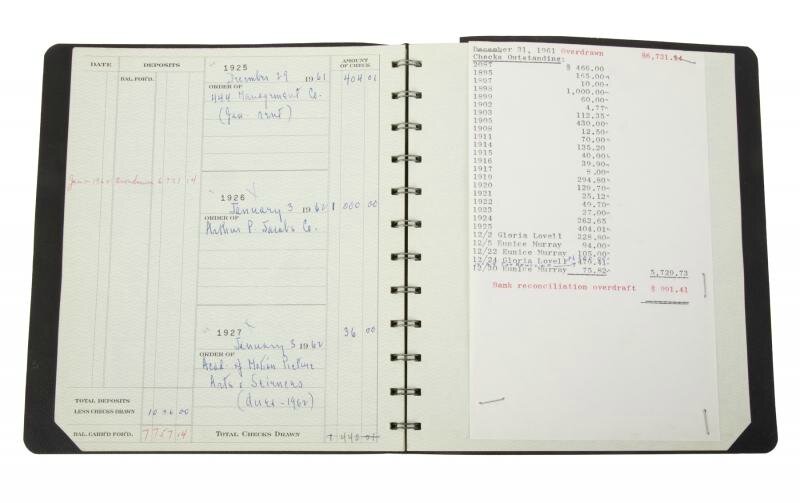 DATE DEPOSITS AMOUNT OF CHECK
BAL. FOR'D.
1925
December 29 1961 404 01
ORDER OF
444 Management Co.
(Jan. rent)
Jan 1 - 1962 Overdrawn 6 731 14
1926
January 3 1962 1 000 00
ORDER OF
Arthur P. Jacobs Co.
1927
January 3 1962 36 00
ORDER OF
Acad. of Motion Picture
Arts & Sciences
(dues - 1962)
TOTAL DEPOSITS
LESS CHECKS DRAWN 10 36 00
BAL. CARR'D FOR'D. 7 7 5 7 14
TOTAL CHECKS DRAWN 1 440 01
December 31, 1961 Overdrawn $6,731.14
Checks Outstanding:
2087 $ 466.00
1895 165.00
1897 10.00
1898 1,000.00
1899 60.00
1902 4.77
1903 112.35
1905 430.00
1908 12.50
1911 70.00
1914 135.20
1915 40.00
1916 39.90
1917 8.00
1919 294.80
1920 129.70
1921 25.12
1922 49.70
1923 27.00
1924 262.65
1925 404.01
12/2 Gloria Lovell 228.80
12/5 Eunice Murray 94.00
12/22 Eunice Murray 105.00
12/24 Gloria Lovell 479.41
12/30 Eunice Murray 75.82 5,729.73
Bank reconciliation overdraft $ 991.41